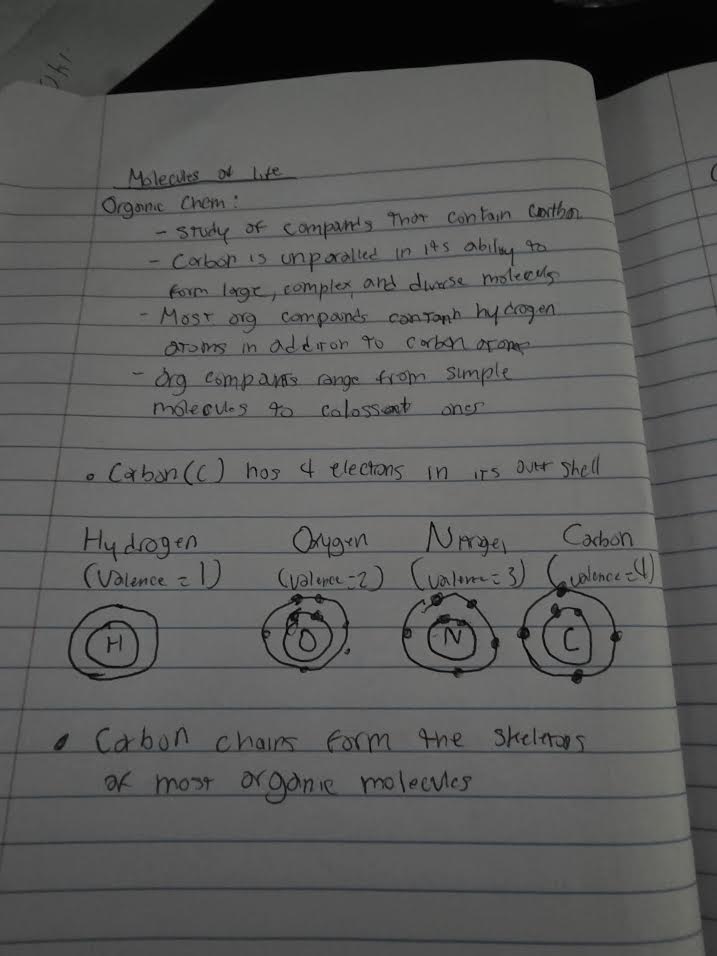 Molecules of life
Organic Chem:
- Study of compands that contain carbon
- Carbon is unparalled in its ability to
form large, complex, and diverse moleculs
- Most org compainds contanh hydrogen
atoms in additon to carbon atoms
- Org compants range from simple
molecules to colossant ones
• Carbon (C) has 4 electrons in its outer shell
Hydrogen Oxygen Carbon
(Valence = 1) (Valence = 2) (Valence = 3) (valence = 4)
H O N C
• Carbon chains form the skeletons
of most organic molecules